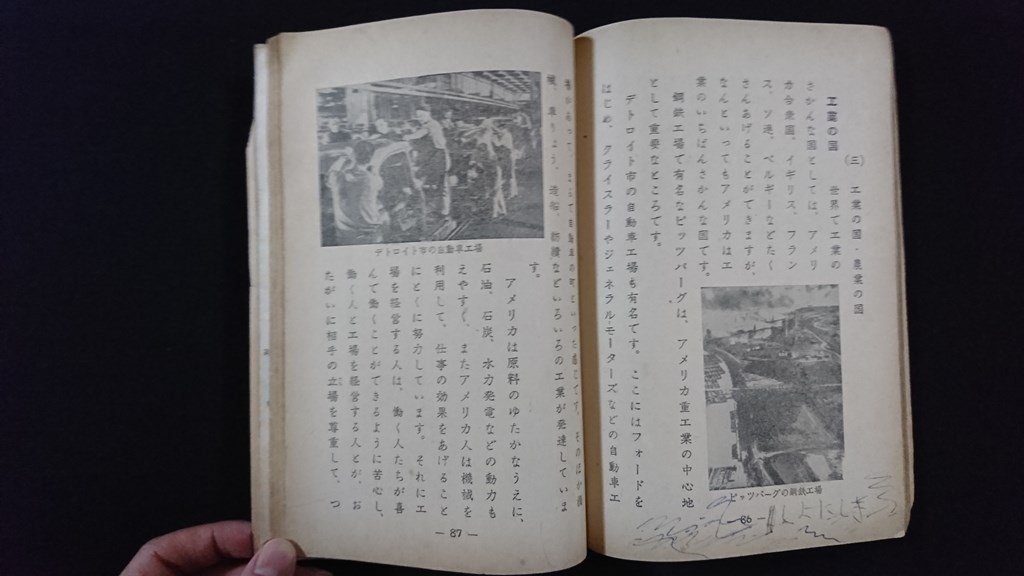 (三) 工業の国・農業の国
工業の国
世界で工業の
さかんな国としては、アメリ
カ合衆国、イギリス、フラン
ス、ソ連、ベルギーなどたく
さんあげることができますが、
なんといってもアメリカは工
業のいちばんさかんな国です。
鋼鉄工場で有名なピッツバーグは、アメリカ重工業の中心地
として重要なところです。
デトロイト市の自動車工場も有名です。ここにはフォードを
はじめ、クライスラーやジェネラル・モーターズなどの自動車工
ピッツバーグの鋼鉄工場
86
場があって、まるで自動車の町といった感じです。そのほか機
械、車りょう、造船、紡績などいろいろの工業が発達していま
す。
アメリカは原料のゆたかなうえに、
石油、石炭、水力発電などの動力も
えやすく、またアメリカ人は機械を
利用して、仕事の効果をあげること
にとくに努力しています。それに工
場を経営する人は、働く人たちが喜
んで働くことができるように苦心し、
働く人と工場を経営する人とが、お
たがいに相手の立場を尊重して、つ
デトロイト市の自動車工場
— 87 —